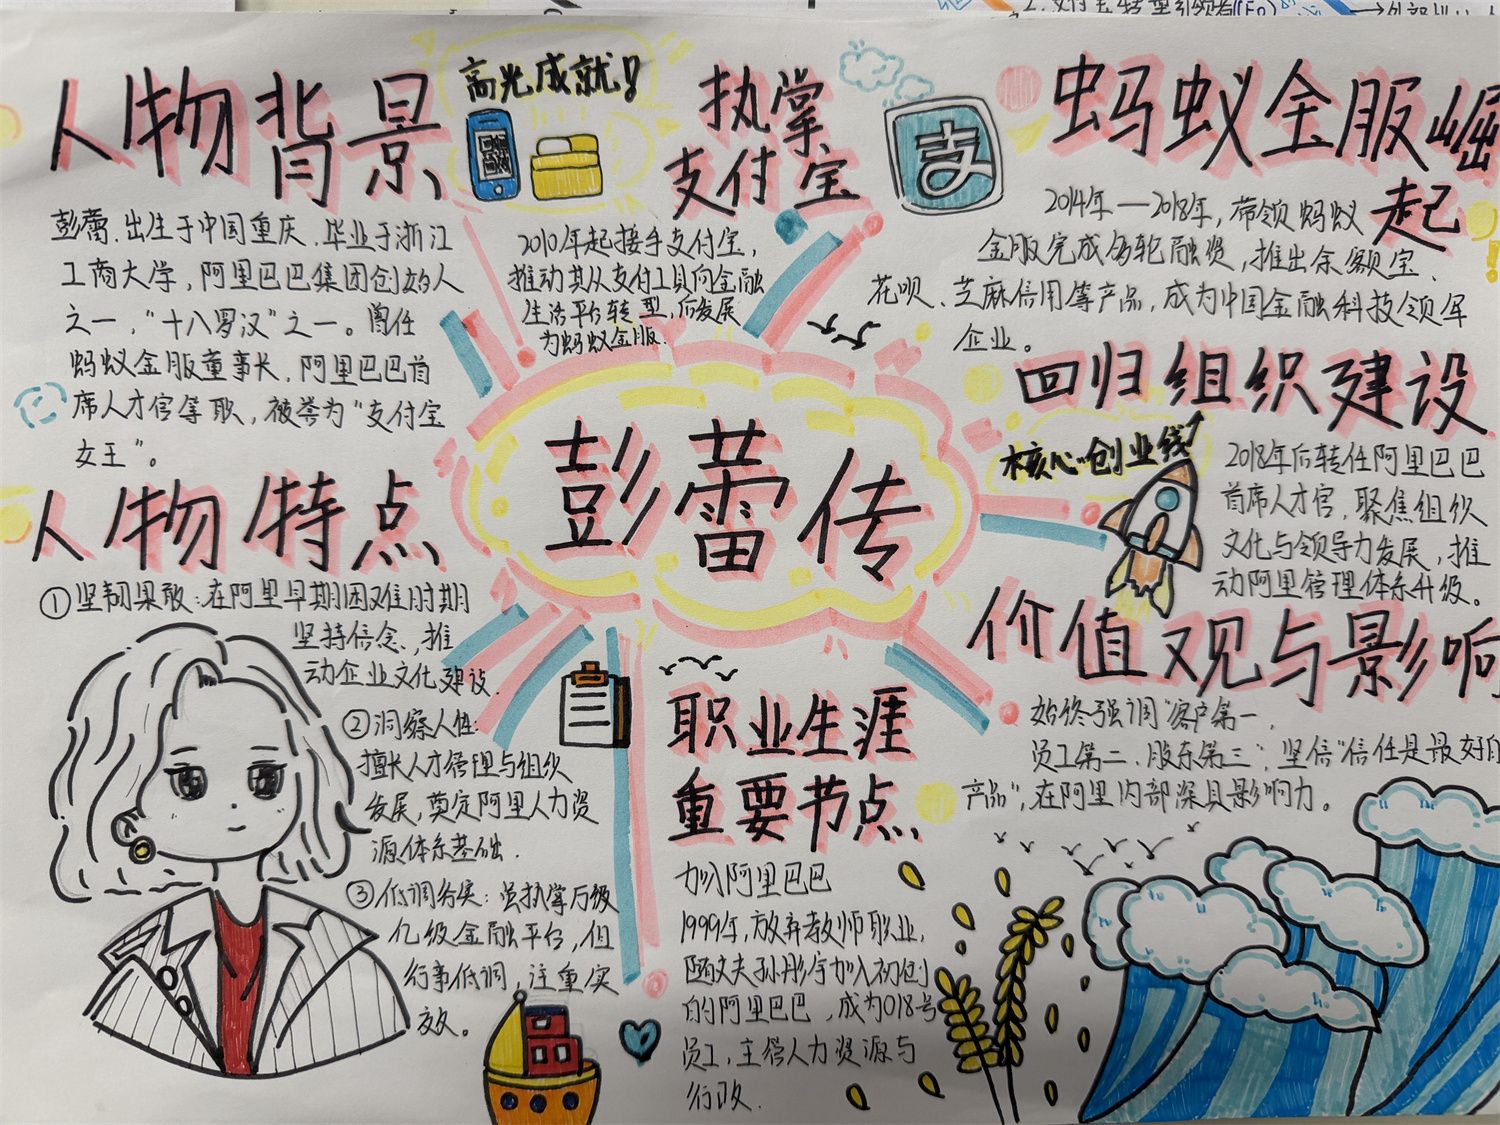 人物背景
彭蕾,出生于中国重庆,毕业于浙江
工商大学,阿里巴巴集团创始人
之一,“十八罗汉”之一。曾任
蚂蚁金服董事长,阿里巴巴首
席人才官等职,被誉为“支付宝
女王”。
人物特点
①坚韧果敢:在阿里早期困难时期
坚持信念,推
动企业文化建设.
②洞察人性:
擅长人才管理与组织
发展,奠定阿里人力资
源体系基础.
③低调务实:虽执掌万级
亿级金融平台,但
行事低调,注重实
效。
高光成就!
执掌
支付宝
支
2010年起接手支付宝,
推动其从支付工具向金融
生活平台转型,后发展
为蚂蚁金服.
彭蕾传
职业生涯
重要节点
加入阿里巴巴
1999年,放弃教师职业,
随丈夫孙彤宇加入初创
的阿里巴巴,成为018号
员工,主管人力资源与
行政.
蚂蚁金服崛
起
2014年—2018年,带领蚂蚁
金服完成多轮融资,推出余额宝、
花呗、芝麻信用等产品,成为中国金融科技领军
企业。
回归组织建设
核心创业线
2018年后转任阿里巴巴
首席人才官,聚焦组织
文化与领导力发展,推
动阿里管理体系升级。
价值观与影响
始终强调“客户第一,
员工第二、股东第三”,坚信“信任是最好的
产品”,在阿里内部深具影响力。